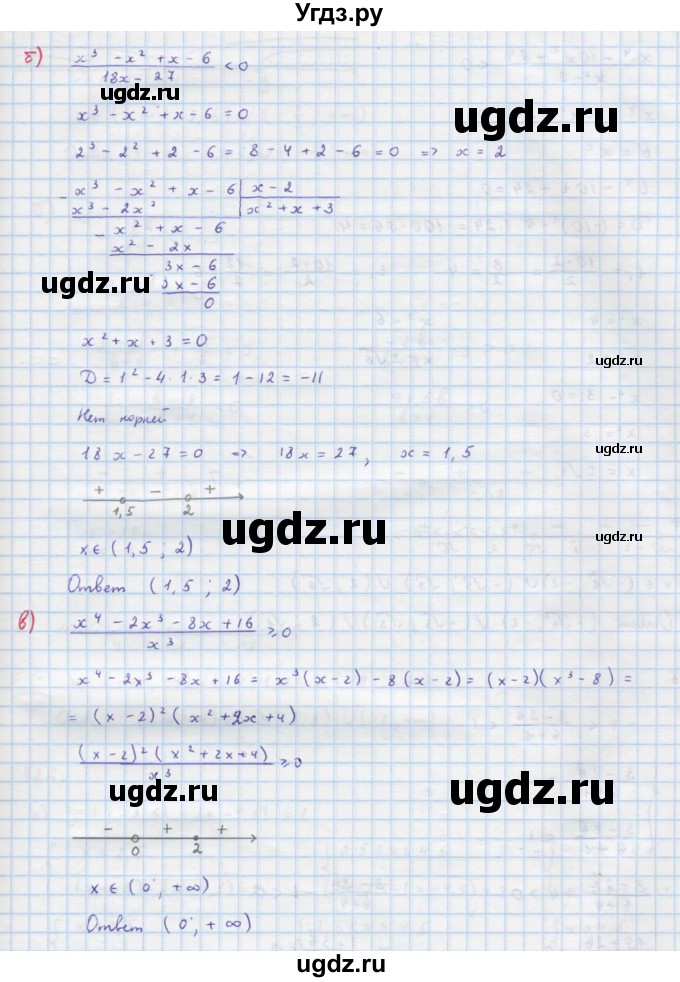 Угдз.ру
б) (x³ - x² + x - 6)/(18x - 27) < 0
ugdz.ru
ugdz.ru
x³ - x² + x - 6 = 0
ugdz.ru
2³ - 2² + 2 - 6 = 8 - 4 + 2 - 6 = 0 => x = 2
- x³ - x² + x - 6 | x - 2
x³ - 2x² | x² + x + 3
- x² + x - 6
x² - 2x
3x - 6
ugdz.ru
3x - 6
ugdz.ru
0
x² + x + 3 = 0
D = 1² - 4 · 1 · 3 = 1 - 12 = -11
Нет корней
18x - 27 = 0 => 18x = 27, x = 1,5
+ - +
1,5 2
ugdz.ru
ugdz.ru
x ∈ (1,5 ; 2)
Ответ (1,5 ; 2)
ugdz.ru
в) (x⁴ - 2x³ - 8x + 16)/x³ ≥ 0
x⁴ - 2x³ - 8x + 16 = x³(x - 2) - 8(x - 2) = (x - 2)(x³ - 8) =
= (x - 2)²(x² + 2x + 4)
ugdz.ru
((x - 2)²(x² + 2x + 4))/x³ ≥ 0
ugdz.ru
ugdz.ru
- + +
0 2
x ∈ (0; +∞)
ugdz.ru
Ответ (0; +∞)
ugdz.ru